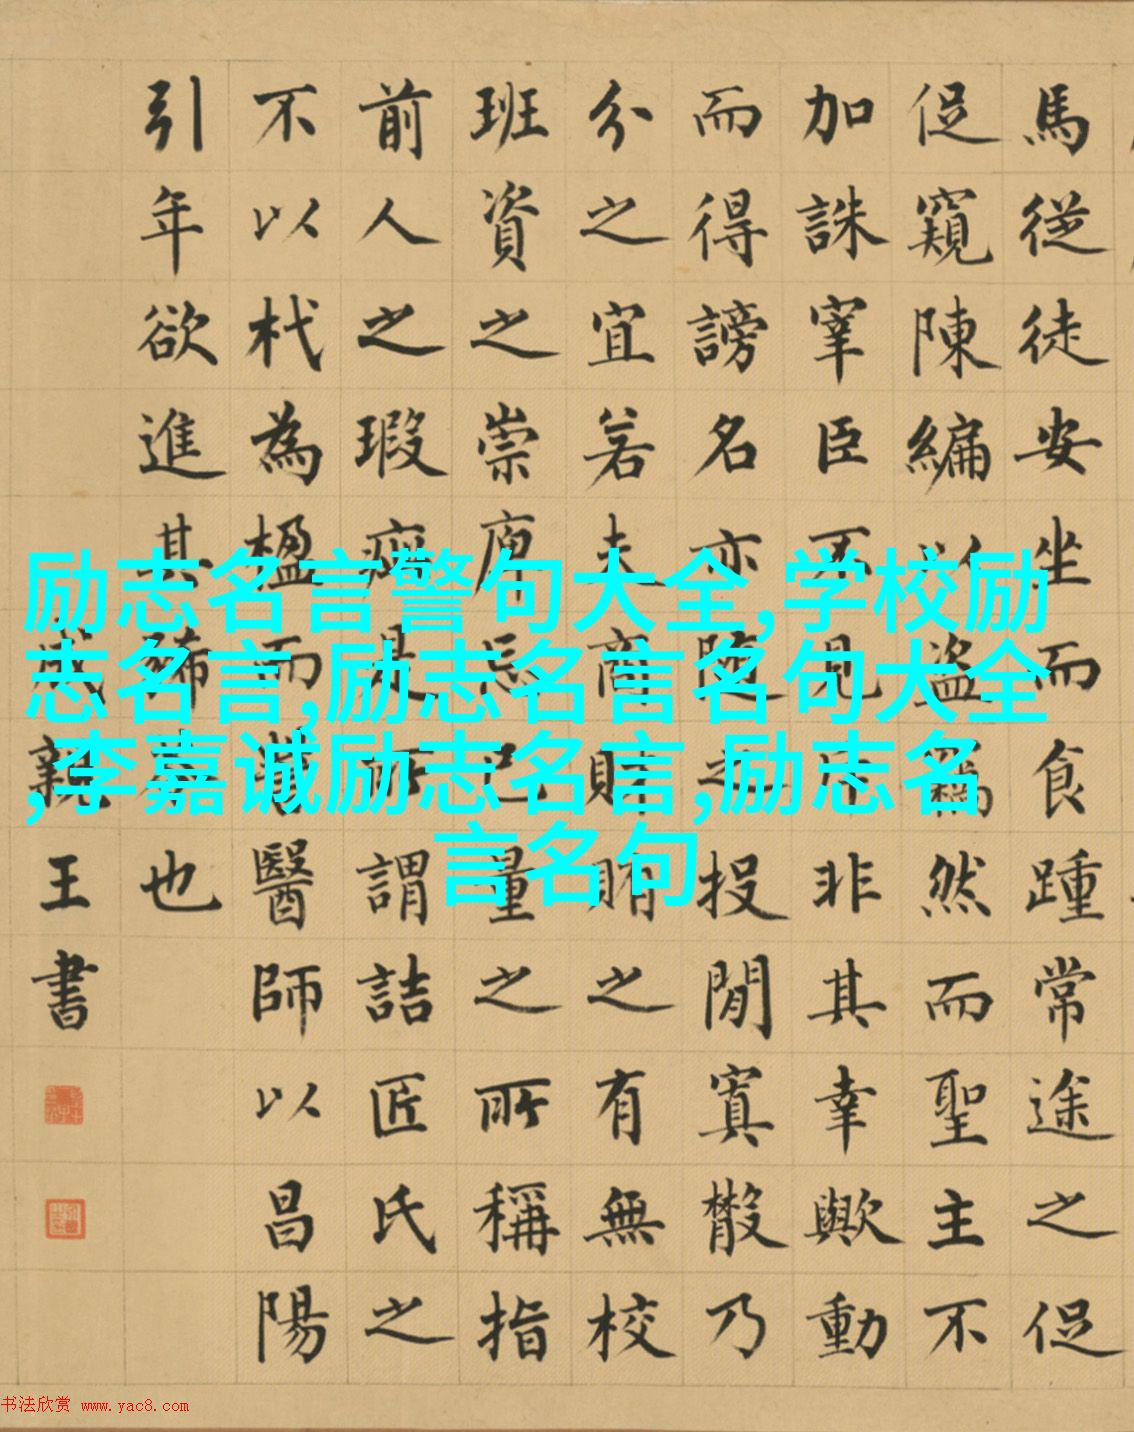 馬從徒安坐而食踵常途之促
促窺陳編以盜竊然而聖主不
加誅宰臣不見斥非其幸歟動
而得謗名亦隨之投閒寘散乃
分之宜若夫商財賄之有無校
班資之崇庳忘己量之所稱指
前人之瑕疵是所謂詰匠氏之
不以杙為楹而訾醫師以昌陽
引年欲進其豨苓也
成親王書
励志名言警句大全,学校励
志名言,励志名言名句大全
,李嘉诚励志名言,励志名
言名句
书法欣赏 www.yac8.com